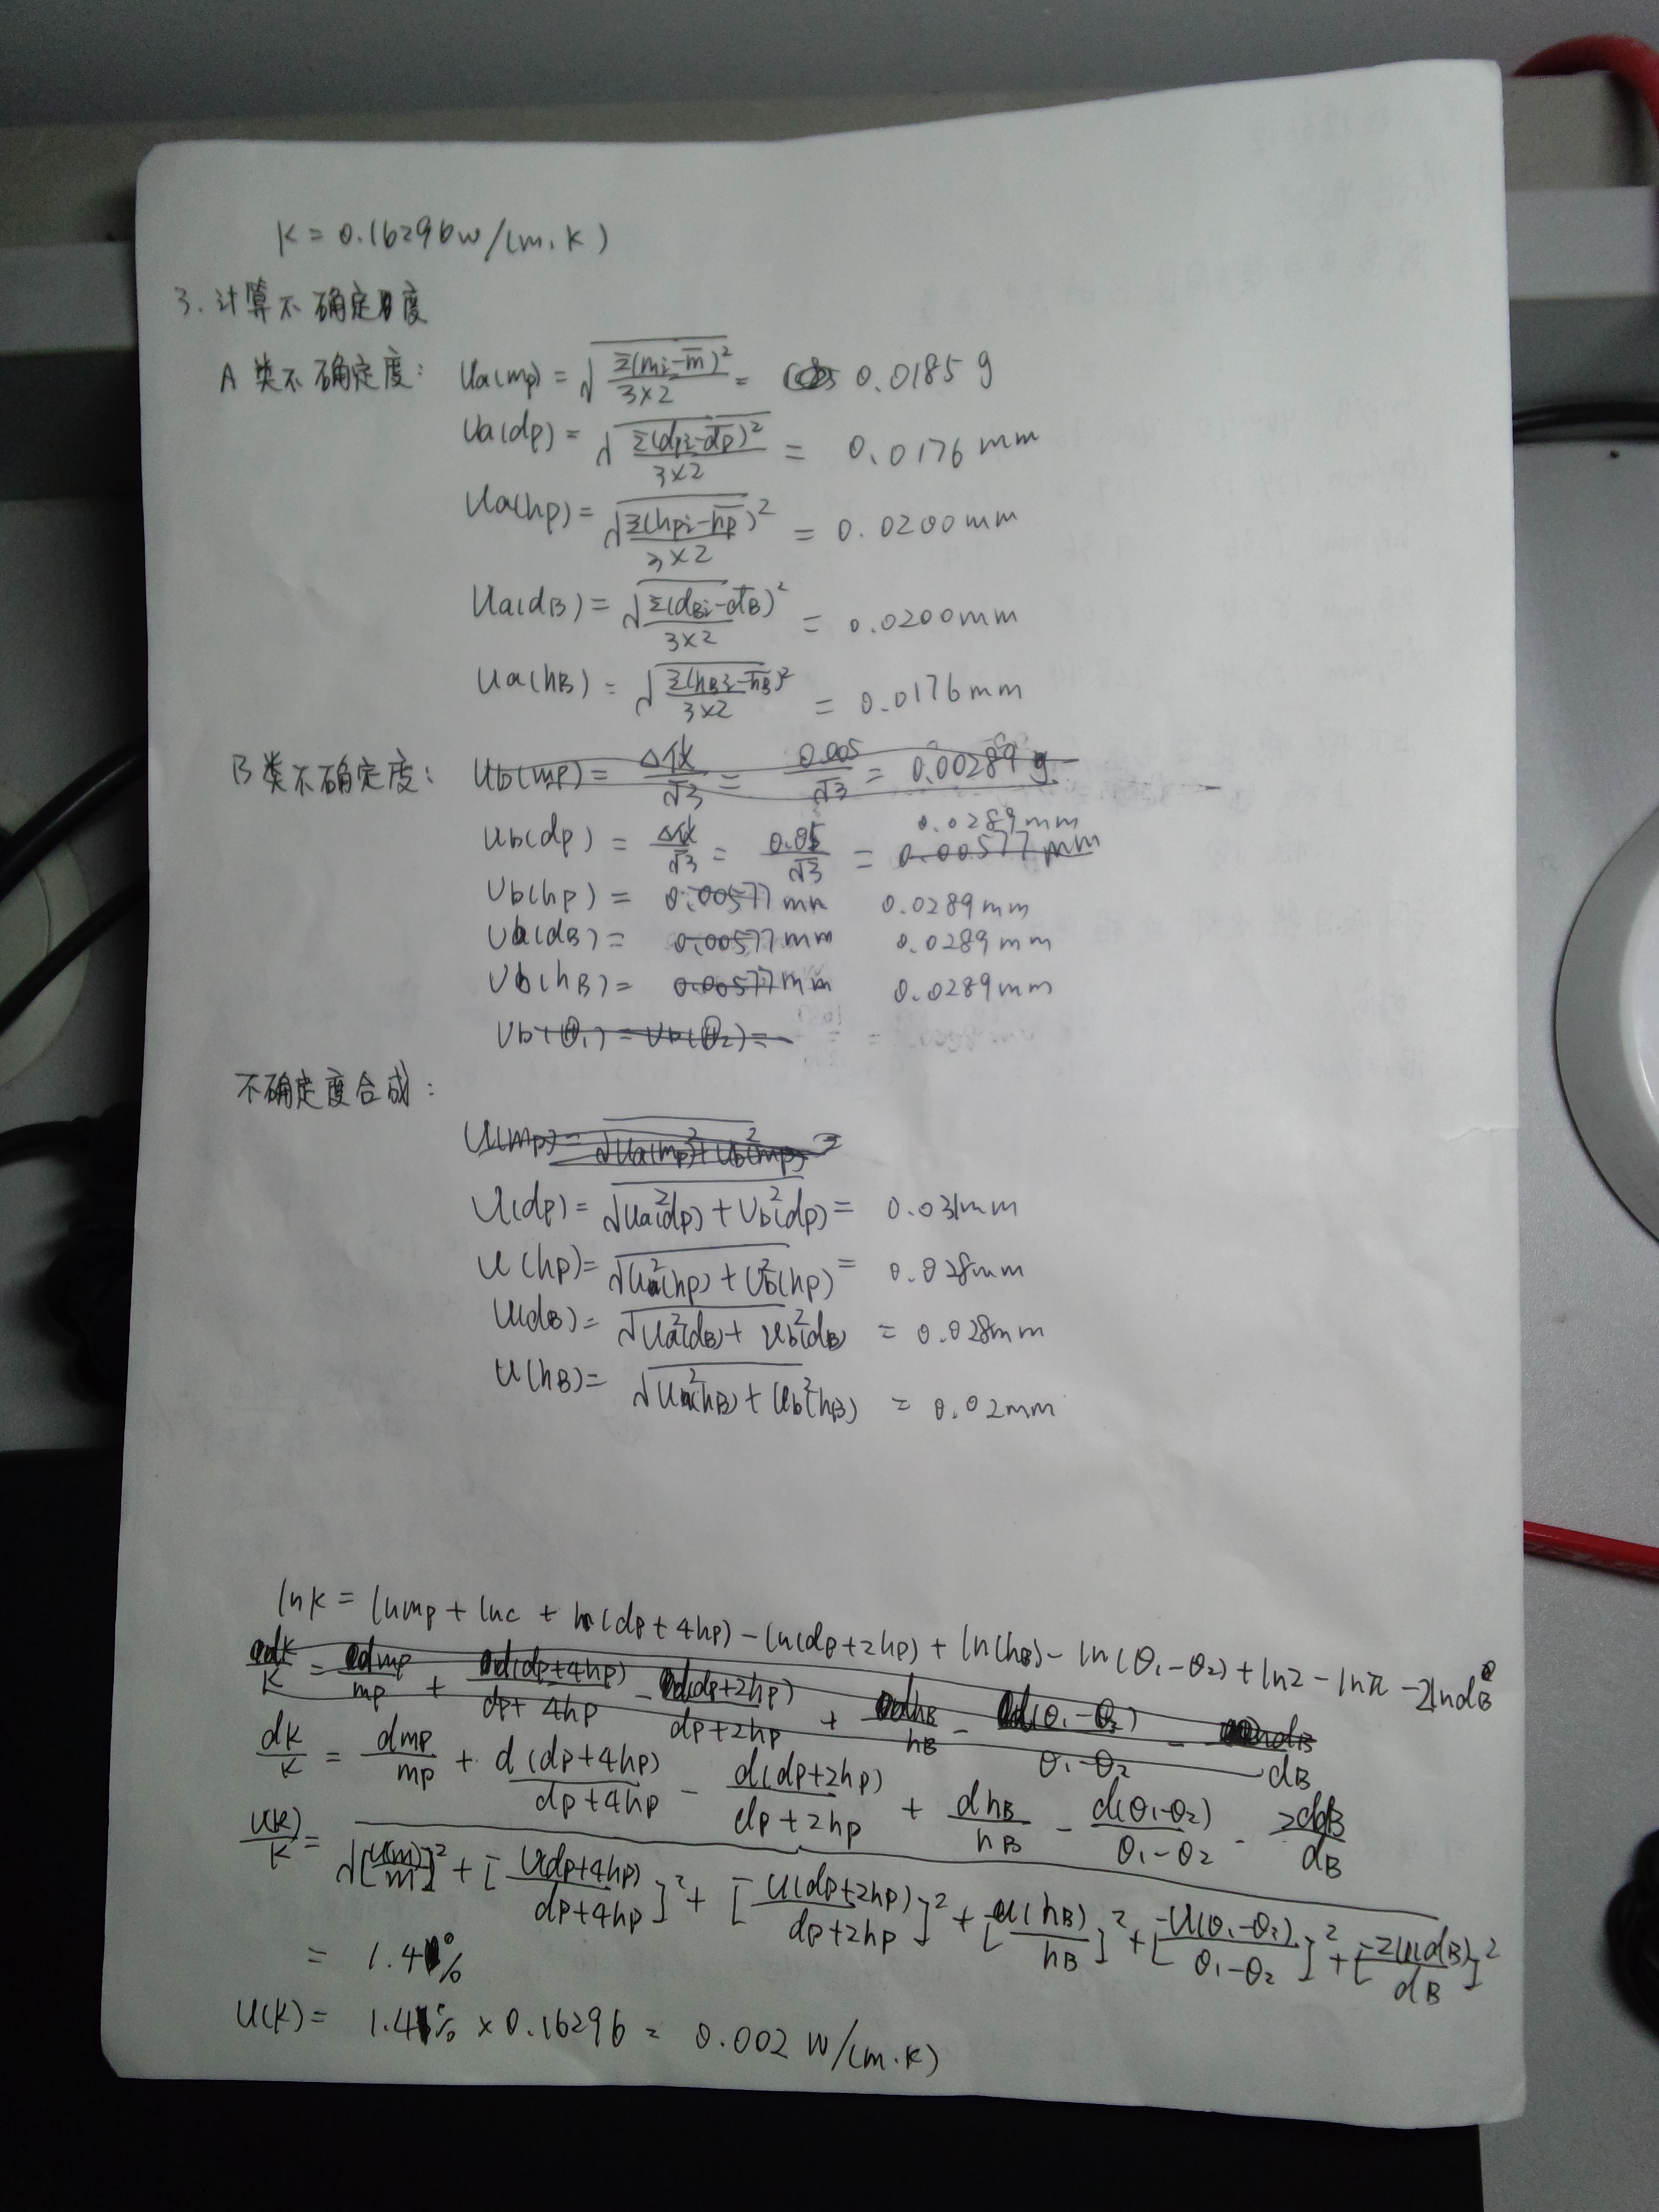 K = 0.16296w/(m.K)
3. 计算不确定度
A类不确定度: Ua(mp) = √(Σ(mi-m̅)²/3×2) = 0.0185 g
Ua(dp) = √(Σ(dpi-d̅p̅)²/3×2) = 0.0176 mm
Ua(hp) = √(Σ(hpi-h̅p̅)²/3×2) = 0.0200mm
Ua(dB) = √(Σ(dBi-d̅B)²/3×2) = 0.0200mm
Ua(hB) = √(Σ(hBi-h̅B)²/3×2) = 0.0176mm
B类不确定度: Ub(mp) = Δ仪/√3 = 0.005/√3 = 0.00289 g
Ub(dp) = Δ仪/√3 = 0.05/√3 = 0.00577 mm 0.0289mm
Ub(hp) = 0.00577 mm 0.0289mm
Ub(dB) = 0.00577mm 0.0289mm
Ub(hB) = 0.00577mm 0.0289mm
Ub(θ₁) = Ub(θ₂) =
不确定度合成:
U(mp) = √(Ua(mp)²+Ub(mp)²) =
U(dp) = √(Ua²(dp)+Ub²(dp)) = 0.031mm
U(hp) = √(Ua²(hp)+Ub²(hp)) = 0.028mm
U(dB) = √(Ua²(dB)+Ub²(dB)) = 0.028mm
U(hB) = √(Ua²(hB)+Ub²(hB)) = 0.02mm
lnK = lnmp + lnc + ln(dp+4hp) - ln(dp+2hp) + ln(hB) - ln(θ₁-θ₂) + ln2 - lnπ - 2lndB
dK/K = dmp/mp + d(dp+4hp)/dp+4hp - d(dp+2hp)/dp+2hp + dhB/hB - d(θ₁-θ₂)/θ₁-θ₂ - dB
dK/K = dmp/mp + d(dp+4hp)/dp+4hp - d(dp+2hp)/dp+2hp + dhB/hB - d(θ₁-θ₂)/θ₁-θ₂ - 2ddB/dB
U(K)/K = √([U(m)/m]² + [U(dp+4hp)/dp+4hp]² + [-U(dp+2hp)/dp+2hp]² + [U(hB)/hB]² + [-U(θ₁-θ₂)/θ₁-θ₂]² + [-2U(dB)/dB]²)
= 1.4%
U(K) = 1.4% × 0.16296 = 0.002 W/(m.K)